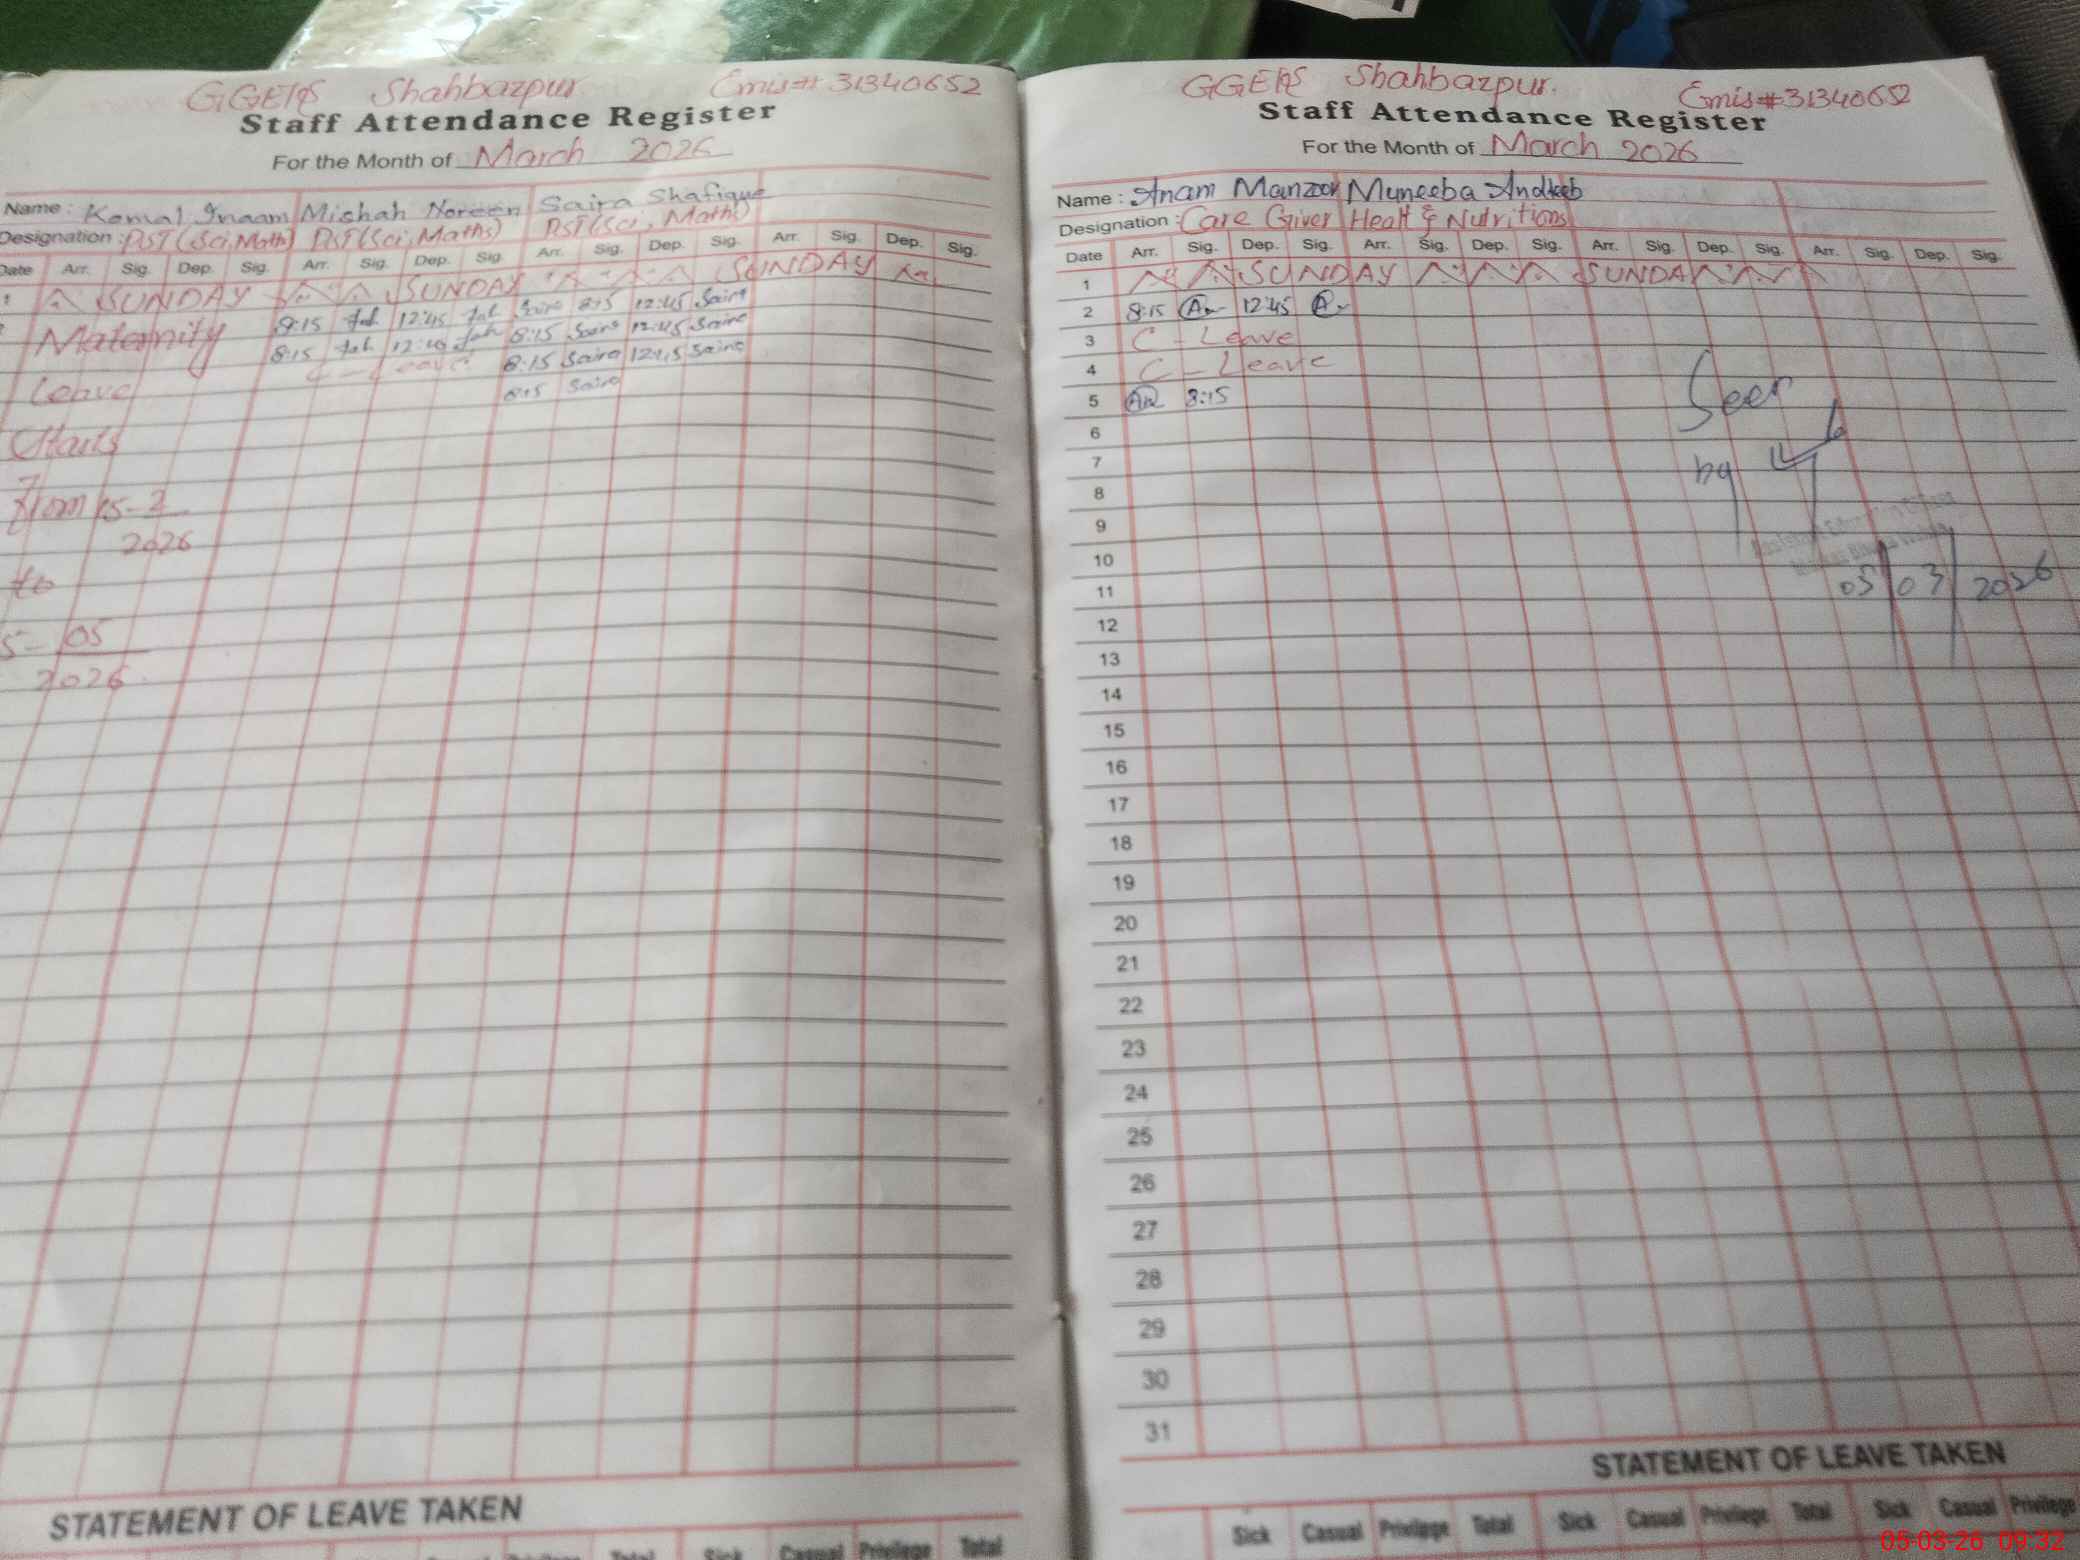 GGEPS Shahbazpur Emis# 31340652
Staff Attendance Register
For the Month of March 2026
Name: Komal Inaam Mishah Noreen Saira Shafique
Designation: PST (Sci, Math) PST (Sci, Maths) PST (Sci, Maths)
Date Arr. Sig. Dep. Sig. Arr. Sig. Dep. Sig. Arr. Sig. Dep. Sig. Arr. Sig. Dep. Sig.
1 SUNDAY SUNDAY SUNDAY
Maternity 8:15 12:45 Saira 8:15 12:45 Saira
8:15 12:45 8:15 Saira 12:45 Saira
Leave C - Leave 8:15 Saira 12:45 Saira
8:15 Saira
Starts
from 15-2
2026
to
05
2026
STATEMENT OF LEAVE TAKEN
Total Sick Casual Privilege Total
GGEPS Shahbazpur. Emis# 31340652
Staff Attendance Register
For the Month of March 2026
Name: Anam Manzoor Muneeba Andleeb
Designation: Care Giver Healt & Nutritions
Date Arr. Sig. Dep. Sig. Arr. Sig. Dep. Sig. Arr. Sig. Dep. Sig. Arr. Sig. Dep. Sig.
1 SUNDAY SUNDAY
2 8:15 12:45
3 C - Leave
4 C - Leave
5 8:15
Seen
6
7
by
8
9
10
11
05/03/2026
12
13
14
15
16
17
18
19
20
21
22
23
24
25
26
27
28
29
30
31
STATEMENT OF LEAVE TAKEN
Sick Casual Privilege Total Sick Casual Privilege Total Sick Casual Privilege
05-03-26 09:32